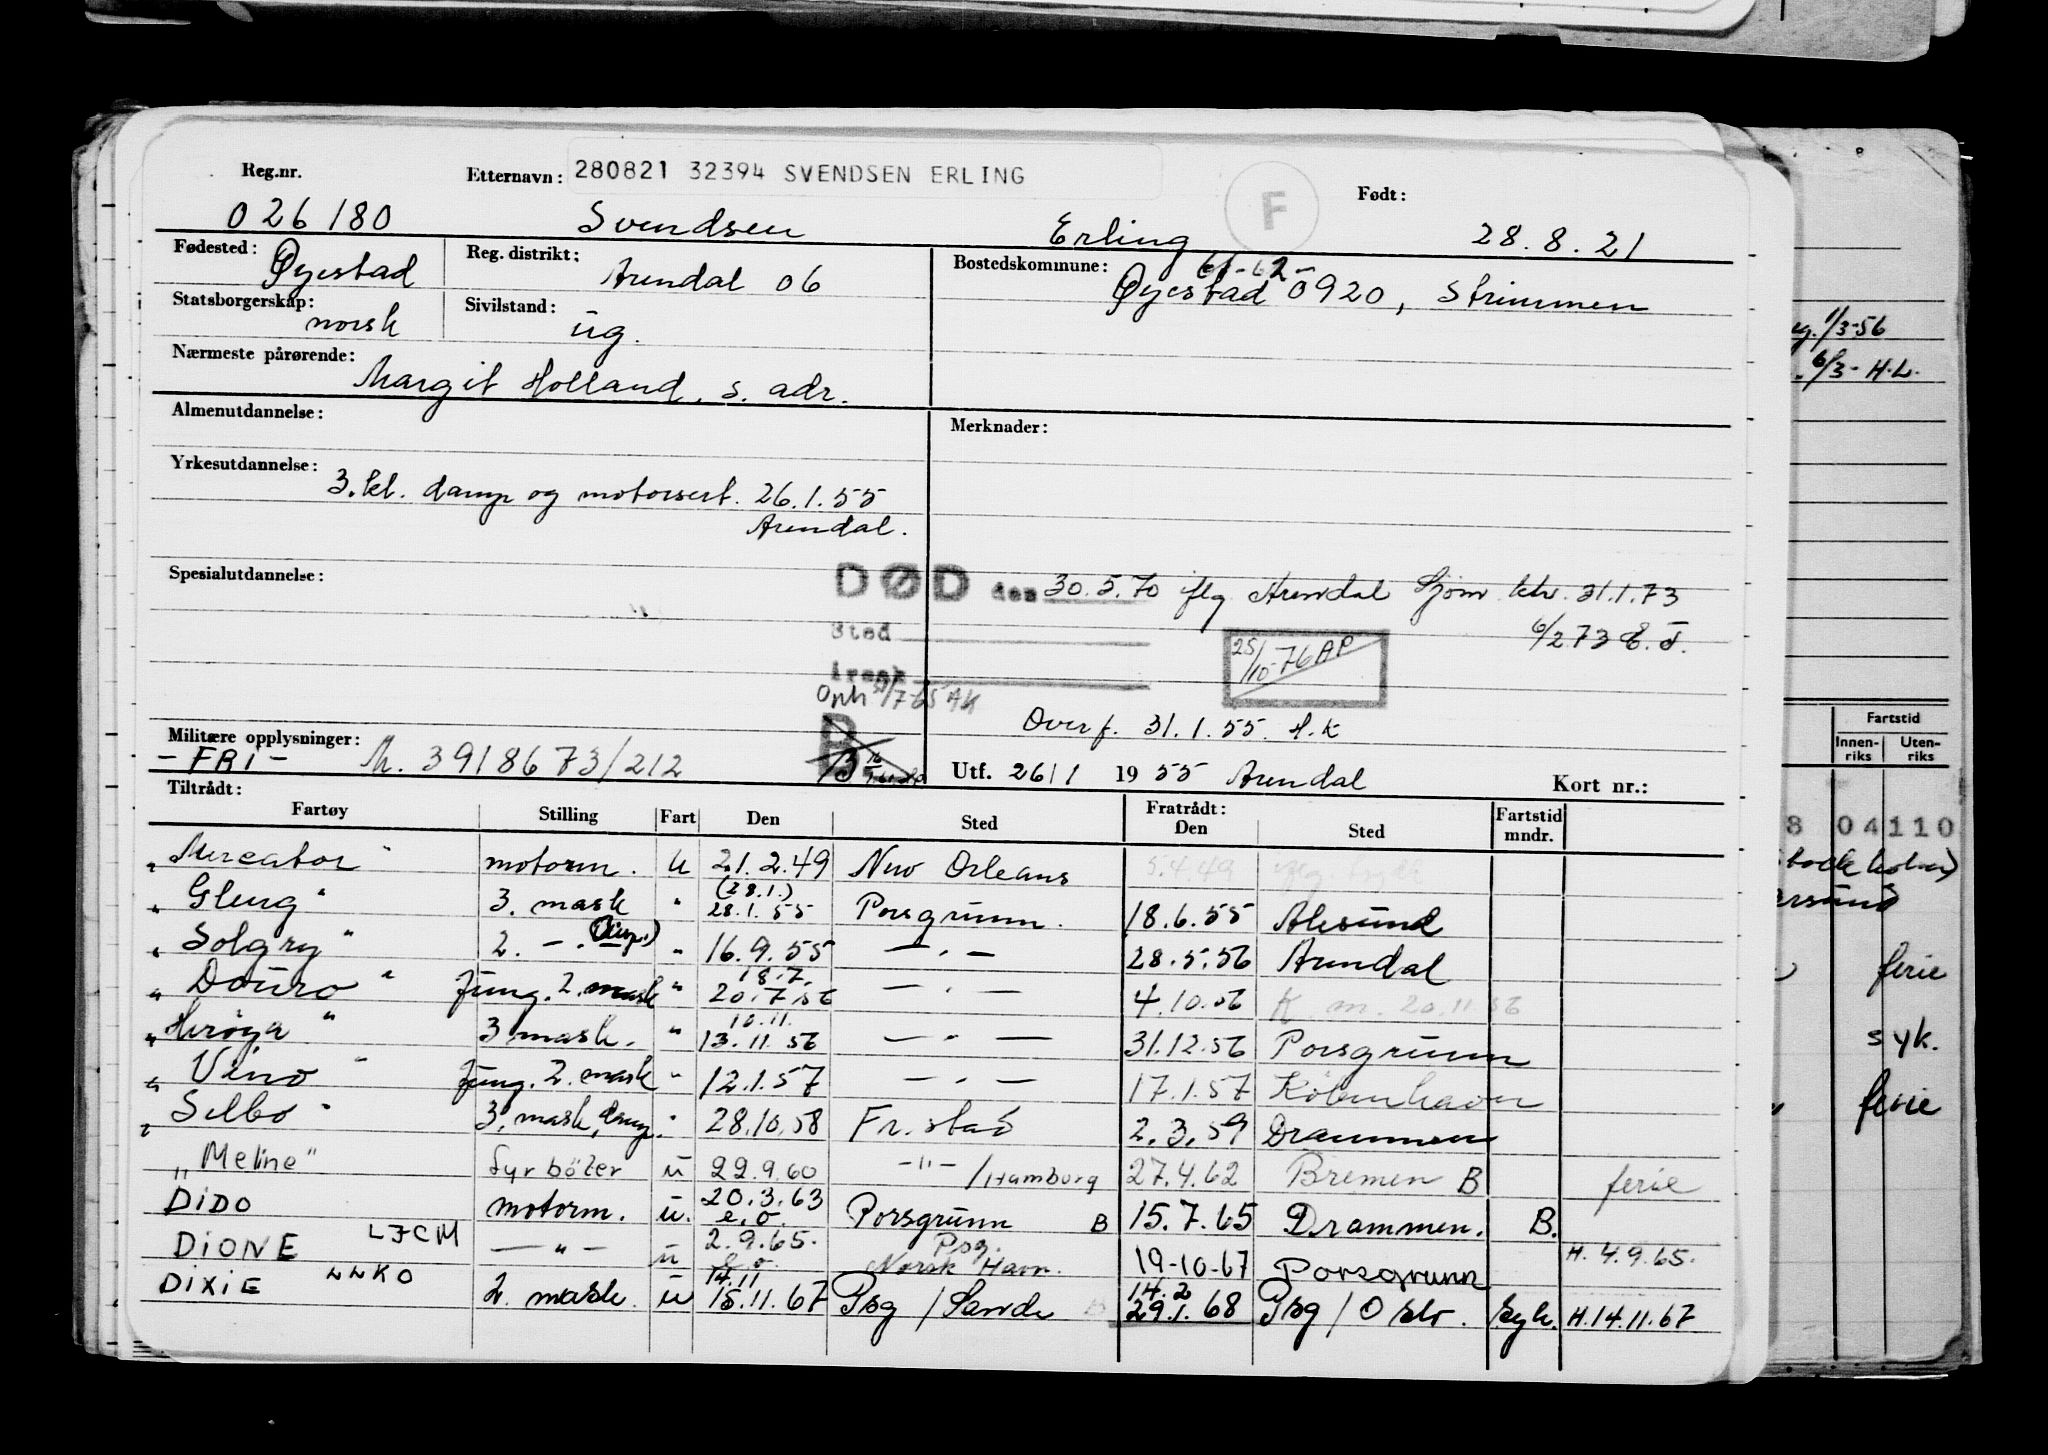 Reg.nr. Etternavn: 280821 32394 SVENDSEN ERLING F Født:
026180 Svendsen Erling 28.8.21
Fødested: Øyestad Reg. distrikt: Arendal 06 Bostedskommune: Øyestad 0920, Strømmen
61-62-
Statsborgerskap: norsk Sivilstand: ug.
Nærmeste pårørende: Margit Holland, s. adr.
Almenutdannelse: Merknader:
Yrkesutdannelse: 3. kl. damp og motorsert. 26.1.55
Arendal.
Spesialutdannelse: DØD den 30.5.70 iflg Arendal Sjøm. ktr. 31.1.73
Sted 6/2 73 E.J.
25/10-76 AP
Årsak
Oph /7-65 AK
B
Overf. 31.1.55. H.K
Militære opplysninger: -FRI- M. 3918673/212
Utf. 26/1 1955 Arendal Kort nr.:
Tiltrådt: Fratrådt:
Fartøy Stilling Fart Den Sted Den Sted Fartstid mndr.
"Mercator" motorm. u 21.2.49 New Orleans 5.4.49
"Gleng" 3. mask " (28.1.) 28.1.55 Porsgrunn. 18.6.55 Ålesund
"Solgry" 2. - " - (Disp.) " 16.9.55 - " - 28.5.56 Arendal
"Douro" Jung. 2. mask " 18.7. 20.7.56 - " - 4.10.56 K.m. 20.11.56
"Herøya" 3 mask. " 10.11. 13.11.56 - " - 31.12.56 Porsgrunn
"Vino" Jung. 2. mask " 12.1.57 - " - 17.1.57 København
"Selbo" 3. mask, damp. " 28.10.58 Fr.stad 2.3.59 Drammen
"Meline" Fyrbøter u 22.9.60 -"- / Hamburg 27.4.62 Bremen B ferie
DIDO motorm. u. 20.3.63 e.o. Porsgrunn B 15.7.65 Drammen. B.
DIONE LJCM - " - u 2.9.65. e.o. Psg. Norsk Havn. 19-10-67 Porsgrunn H. 4.9.65.
DIXIE LLKO 2. mask. u 14.11 15.11.67 Psg / Sande 14.2 29.1.68 Psg / Oslo. Syk. H.14.11.67
1/3-56
6/3- H.L.
Fartstid
Innenriks Utenriks
8 04110
ferie
syk.
ferie